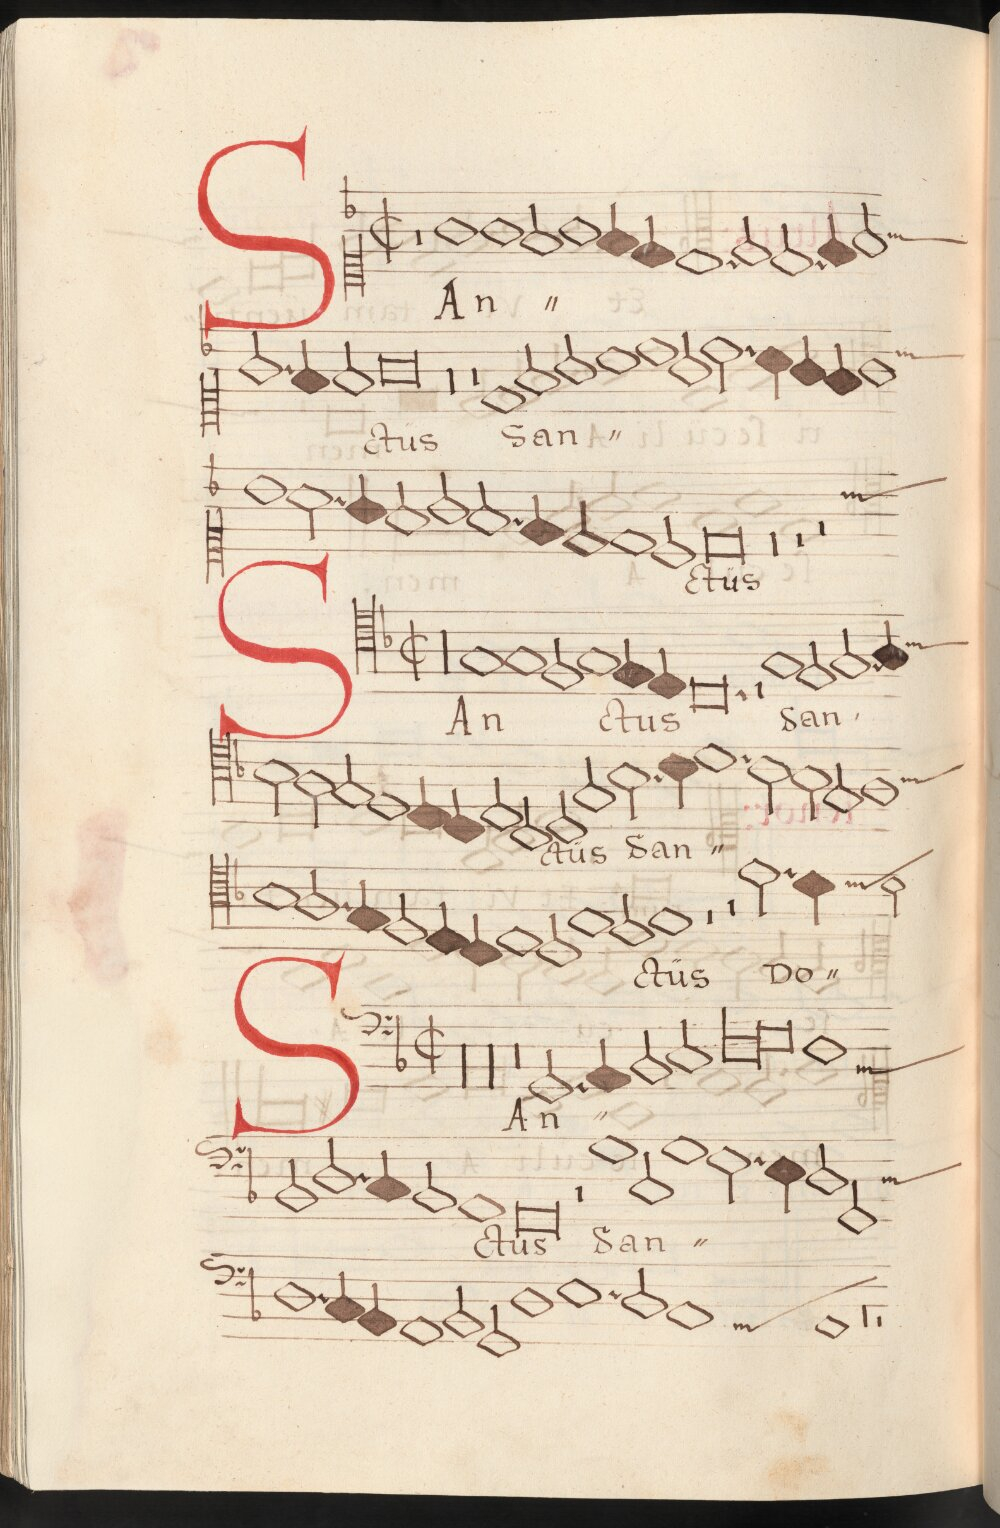 SAn〃
ctus San〃
ctüs
SAn ctus San
ctus San〃
ctüs Do〃
SAn〃
ctus San〃